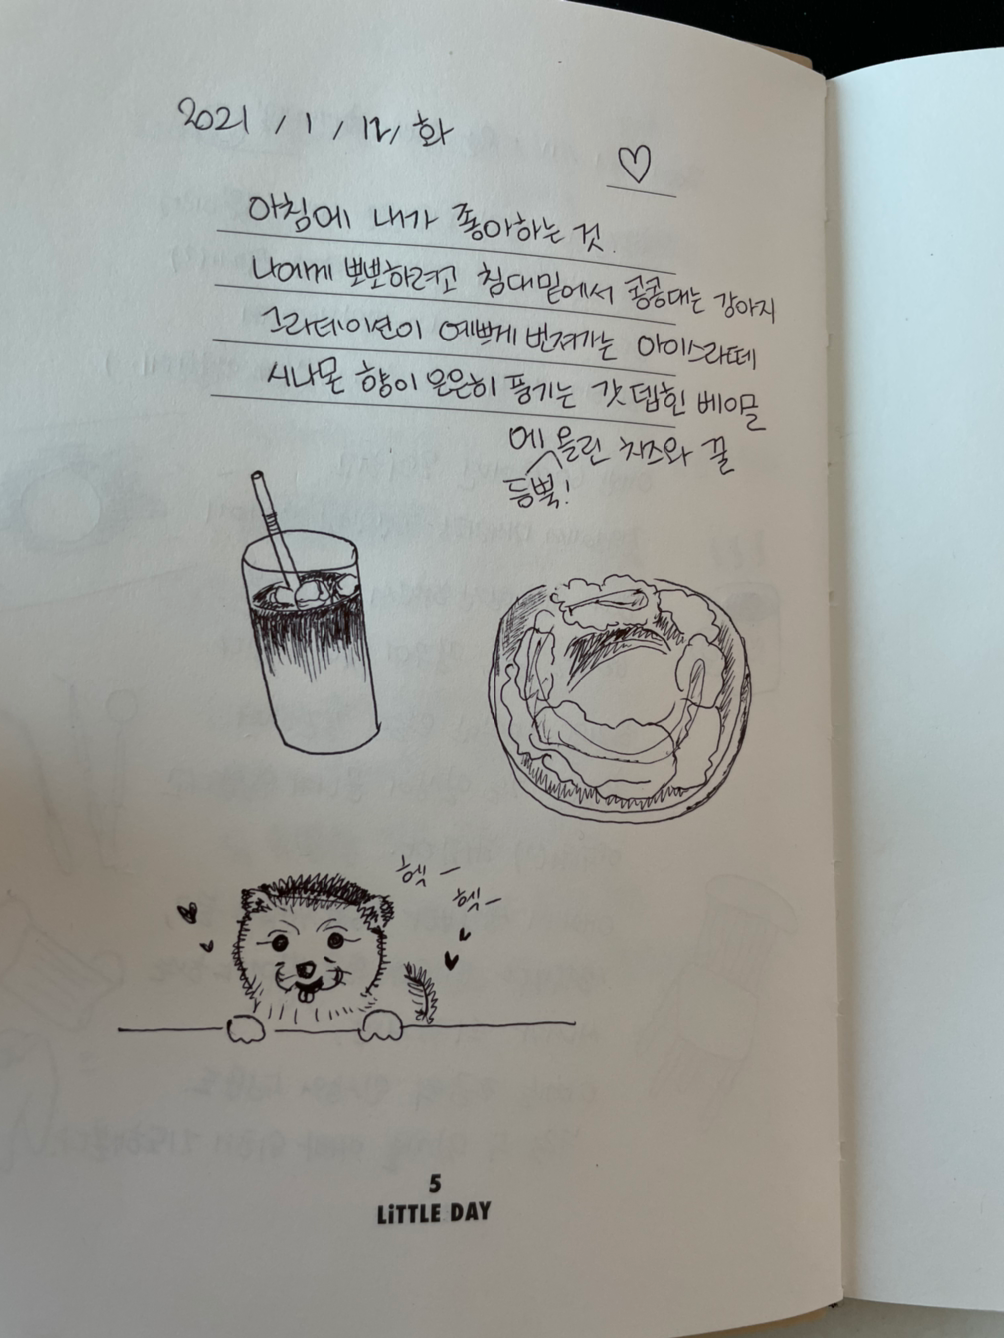 2021 / 1 / 12 / 화
아침에 내가 좋아하는 것.
나에게 뽀뽀하려고 침대밑에서 콩콩대는 강아지
그라데이션이 예쁘게 번져가는 아이스라떼
시나몬 향이 은은히 풍기는 갓 뎁힌 베이글
에 올린 치즈와 꿀
듬뿍!
헥-
헥-
5
LiTTLE DAY